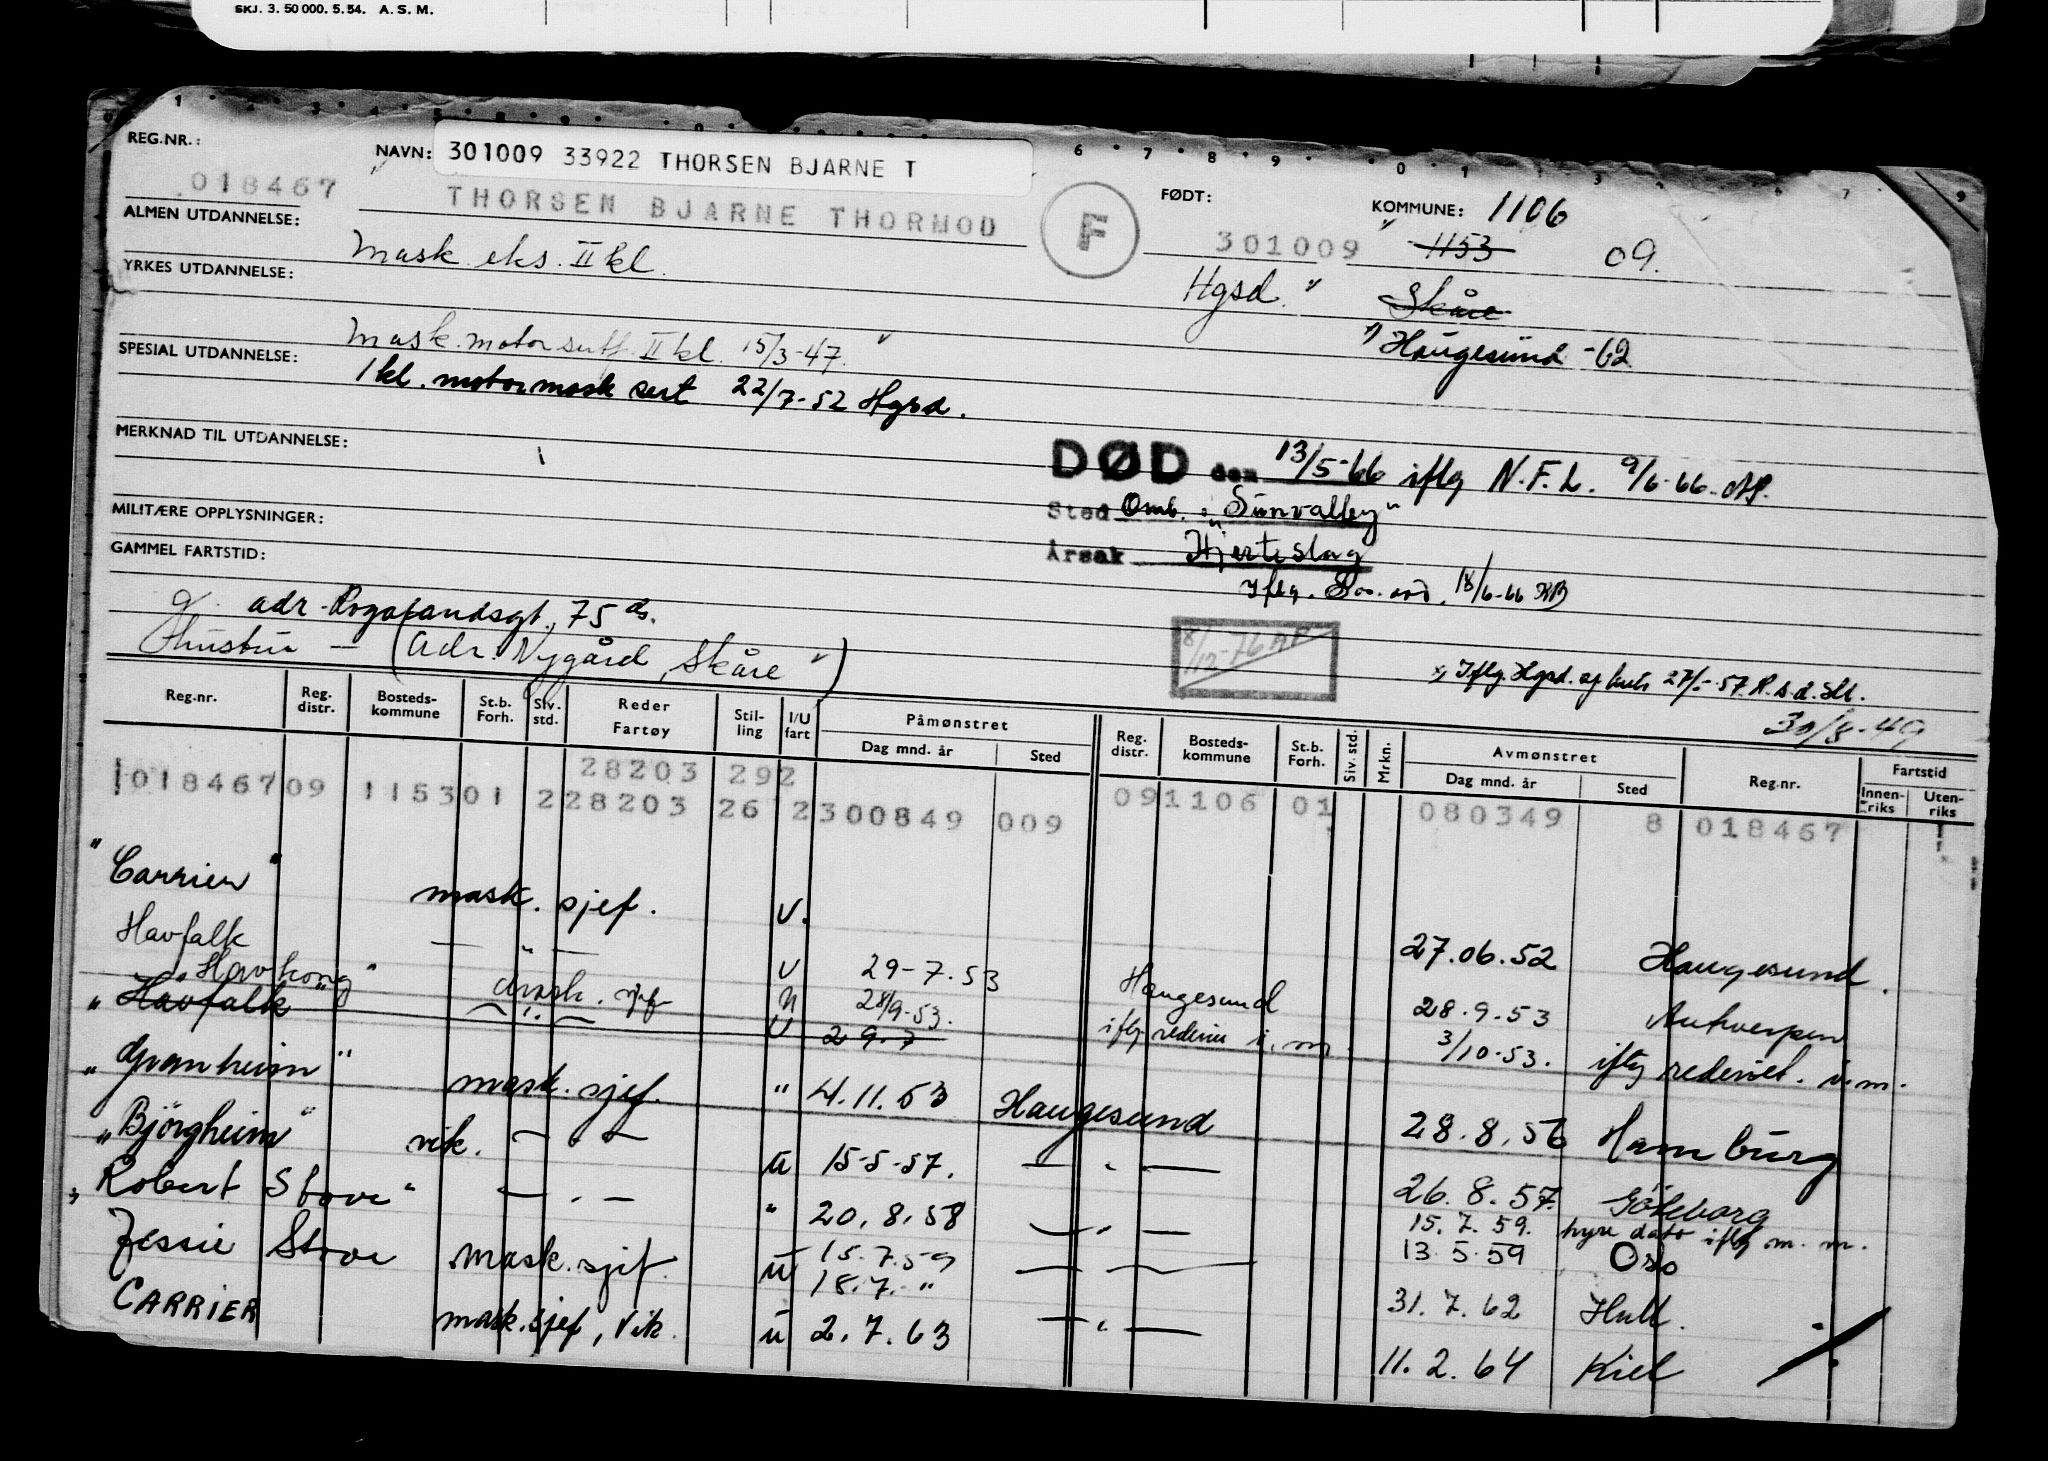 SKJ. 3. 50 000. 5. 54. A. S. M.
REG.NR.:
018467
NAVN: 301009 33922 THORSEN BJARNE T
THORSEN BJARNE THORMOD
F
FØDT:
301009
KOMMUNE: 1106
1153
09.
Hgsd. "
Skåre
Haugesund -62
ALMEN UTDANNELSE:
Mask. eks. II kl.
YRKES UTDANNELSE:
Mask. motor sert. II kl. 15/3-47. "
SPESIAL UTDANNELSE:
1 kl. motormask sert 22/7-52 Hgsd.
MERKNAD TIL UTDANNELSE:
DØD den 13/5-66 iflg N.F.L. 9/6-66
Sted Omb. "Sunvalley"
Årsak Hjerteslag
Iflg. 18/6-66
MILITÆRE OPPLYSNINGER:
GAMMEL FARTSTID:
adr. Rogalandsgt. 75
Hustru — (adr. Nygård, Skåre ")
8/12-76
Iflg. Hgsd. 57
30/8-49
Reg.nr. Reg. distr. Bosteds-kommune St.b. Forh. Siv. std. Reder Fartøy Stil-ling I/U fart Påmønstret Dag mnd. år Sted Reg. distr. Bosteds-kommune St.b. Forh. Siv. std. Mrkn. Avmønstret Dag mnd. år Sted Reg.nr. Fartstid Innen-riks Uten-riks
28203 292
018467 09 1153 01 2 28203 26 2 300849 009 09 1106 01 080349 8 018467
"Carrier" mask. sjef. U. 27.06.52 Haugesund.
Havfalk — " — U 29-7.53 Haugesund 28.9.53 Antwerpen
"Havkong" mask. sjef U 28/9-53. iflg rederiet i. m. 3/10-53. iflg rederiet. i. m.
"Havfalk — " — U 2 9.7
"Granheim" mask. sjef. " 4.11.53 Haugesund 28.8.56 Hamburg
"Bjørgheim" vik. — " — u 15-5-57. — " — 26.8.57. Göteborg
"Robert Stove" — " — " 20.8.58 — " — 15.7.59. hyre dato iflg m. m.
13.5.59 Oslo
Jessie Stove mask. sjef. u 15.7.59 — " — 31.7.62 Hull.
18.7. "
CARRIER mask. sjef, vik. u 2.7.63 — " — 11.2.64 Kiel